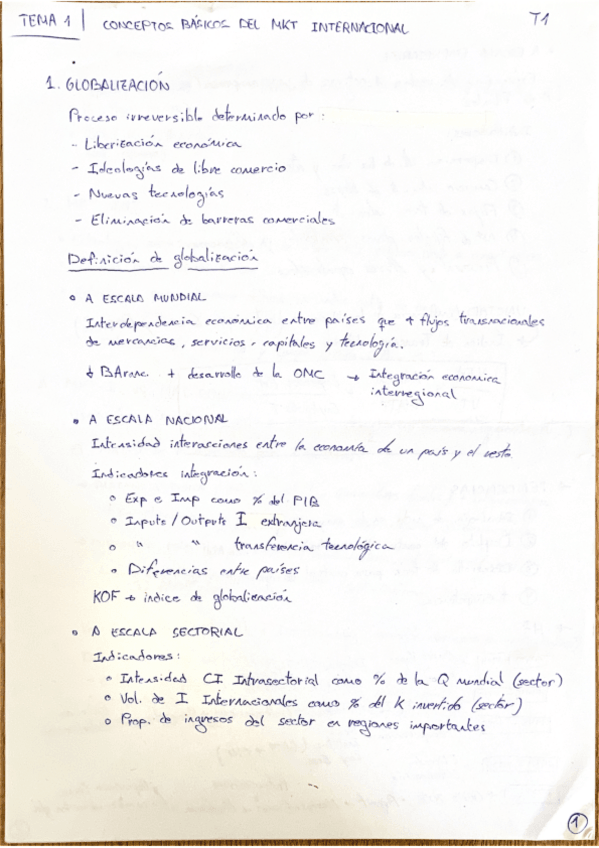 TEMA 1 | CONCEPTOS BÁSICOS DEL MKT INTERNACIONAL
T1
1. GLOBALIZACIÓN
Proceso irreversible determinado por:
- Liberización económica
- Ideologías de libre comercio
- Nuevas tecnologías
- Eliminación de barreras comerciales
Definición de globalización
• A ESCALA MUNDIAL
Interdependencia económica entre países que ↑ flujos transnacionales
de mercancías, servicios, capitales y tecnología.
↓ BAranc. + desarrollo de la OMC → Integración economica
interregional
• A ESCALA NACIONAL
Intensidad interacciones entre la economía de un país y el resto
Indicadores integración:
• Exp e Imp como % del PIB
• Inputs / Outputs I extranjera
• " " transferencia tecnológica
• Diferencias entre países
KOF → indice de globalización
• A ESCALA SECTORIAL
Indicadores:
• Intensidad CI Intrasectorial como % de la Q mundial (sector)
• Vol. de I Internacionales como % del K invertido (sector)
• Prop. de ingresos del sector en regiones importantes
1